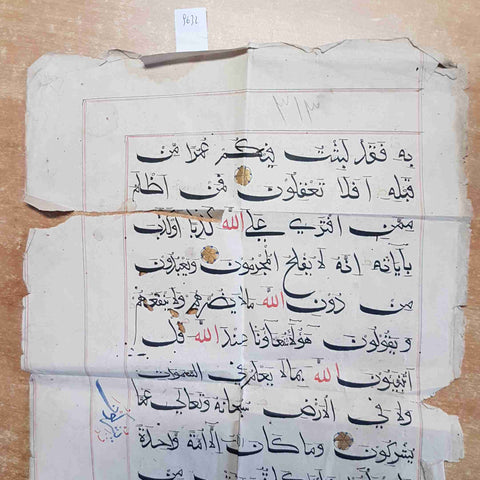 ٣١٣
به فقد لبثت فيكم عمرا من
قبله افلا تعقلون فمن اظلم
ممن افترى على الله كذبا او كذب
بآياته انه لا يفلح المجرمون ويعبدون
من دون الله مالا يضرهم ولا ينفعهم
ويقولون هؤلاء شفعاؤنا عند الله قل
اتنبئون الله بما لا يعلم في السموات
ولا في الارض سبحانه وتعالى عما
يشركون وما كان الا امة واحدة